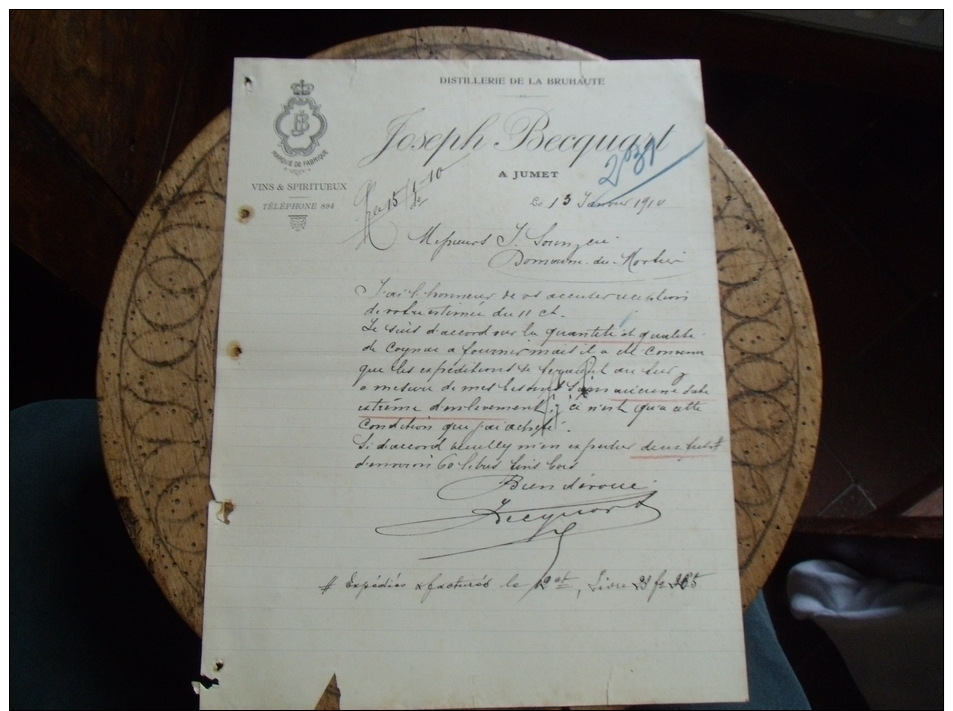 DISTILLERIE DE LA BRUHAUTE
JB
MARQUE DE FABRIQUE
Joseph Becquart
A JUMET
VINS & SPIRITUEUX
TÉLÉPHONE 894
231
15/1-10
Le 13 Janvier 1910
Messieurs J.
Domaine du Mortier
J'ai l'honneur de vs accuser réception
de votre estimée du 11 ct.
Je suis d'accord sur la quantité et qualité
de Cognac a fournir mais il a été convenu
que les expéditions se feraient au fur &
a mesure de mes besoins sans aucune date
extrême d'enlèvement, ce n'est qu'a cette
Condition que j'ai acheté.
Si d'accord veuillez m'en expedier
d'environ 60 litres
Bien dévoué
Becquart
Expédiés & facturés le